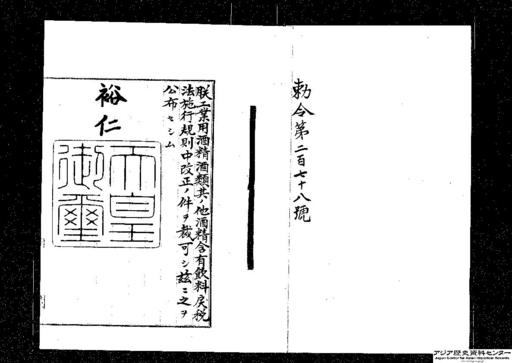 勅令第二百七十八號
朕工業用酒精酒類其ノ他酒精含有飲料戾税
法施行規則中改正ノ件ヲ裁可シ茲ニ之ヲ
公布セシム
裕仁
天皇
御璽
アジア歴史資料センター
Japan Center for Asian Historical Records